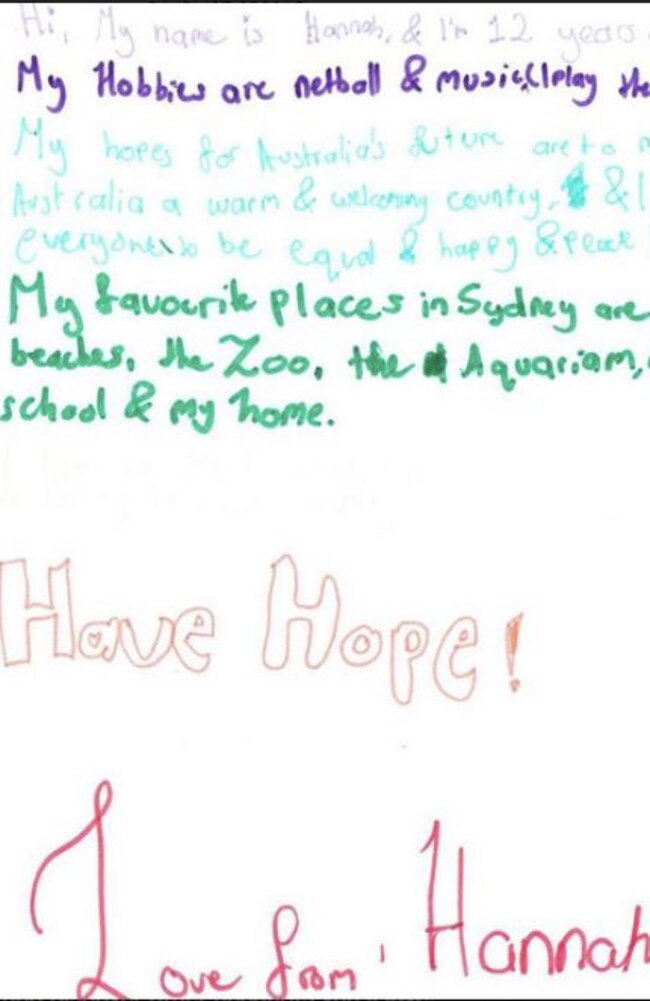 Hi, My name is Hannah, & I'm 12 years
My Hobbies are netball & music(I play the
My hopes for Australia's future are to m
Australia a warm & welcoming country, & I
everyone to be equal & happy & peace
My favourite places in Sydney are
beaches, the Zoo, the Aquariam,
school & my home.
Have Hope!
Love from, Hannah